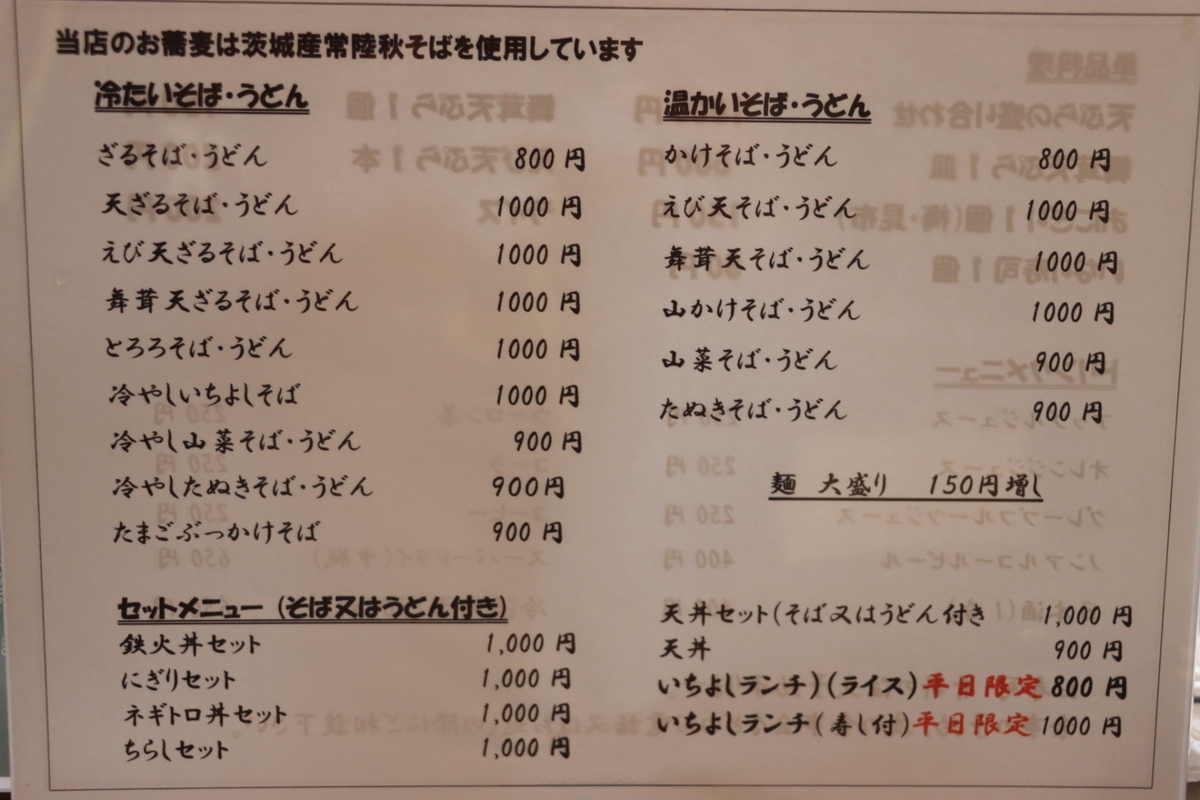 当店のお蕎麦は茨城産常陸秋そばを使用しています
冷たいそば・うどん
ざるそば・うどん 800 円
天ざるそば・うどん 1000 円
えび天ざるそば・うどん 1000 円
舞茸天ざるそば・うどん 1000 円
とろろそば・うどん 1000 円
冷やしいちよしそば 1000 円
冷やし山菜そば・うどん 900 円
冷やしたぬきそば・うどん 900円
たまごぶっかけそば 900 円
セットメニュー（そば又はうどん付き）
鉄火丼セット 1,000 円
にぎりセット 1,000 円
ネギトロ丼セット 1,000 円
ちらしセット 1,000 円
温かいそば・うどん
かけそば・うどん 800 円
えび天そば・うどん 1000 円
舞茸天そば・うどん 1000 円
山かけそば・うどん 1000 円
山菜そば・うどん 900 円
たぬきそば・うどん 900 円
麺 大盛り 150円増し
天丼セット(そば又はうどん付き 1,000 円
天丼 900 円
いちよしランチ)(ライス)平日限定 800 円
いちよしランチ(寿し付)平日限定 1000 円